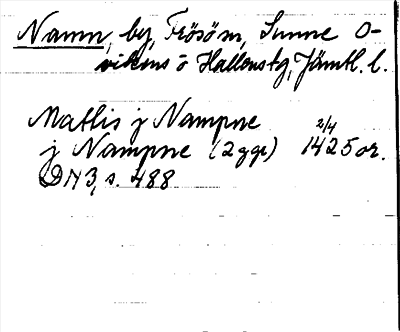 Namn, by, Frösö sn, Sunne O-
vikens o Hallens tg, Jämtl. l.
Mattis j Nampne 2/4
j Nampne (2 ggr) 1425 or.
DN 3, s. 488